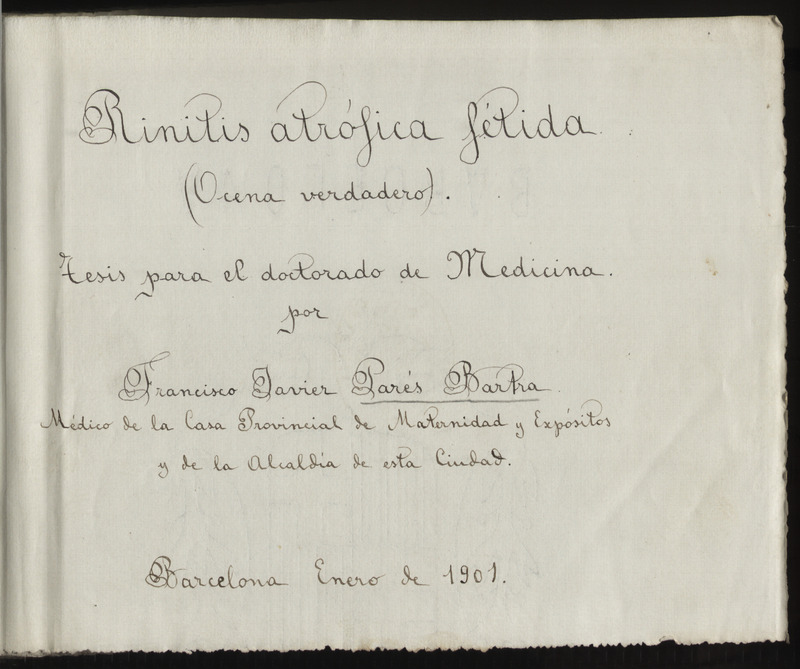 Rinitis atrófica fétida.
(Ocena verdadero).
Tesis para el doctorado de Medicina.
por
Francisco Javier Parés Bartra.
Médico de la Casa Provincial de Maternidad y Expósitos
y de la Alcaldía de esta Ciudad.
Barcelona Enero de 1901.